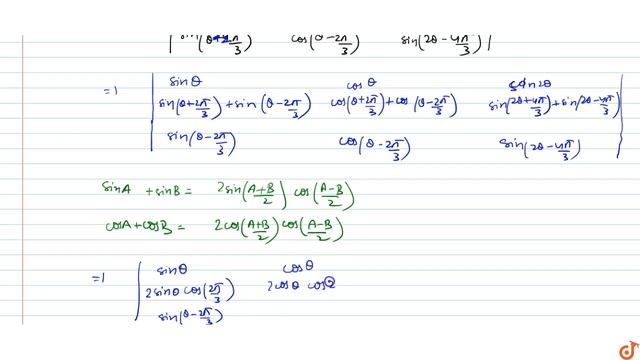 | sin(θ+2π/3) cos(θ-2π/3) sin(2θ-4π/3) |
=1 | sinθ cosθ sin2θ
sin(θ+2π/3)+sin(θ-2π/3) cos(θ+2π/3)+cos(θ-2π/3) sin(2θ+4π/3)+sin(2θ-4π/3)
sin(θ-2π/3) cos(θ-2π/3) sin(2θ-4π/3) |
sinA +sinB = 2sin(A+B/2) cos(A-B/2)
cosA+cosB = 2cos(A+B/2) cos(A-B/2)
=1 | sinθ cosθ
2sinθ cos(2π/3) 2cosθ cos2
sin(θ-2π/3)